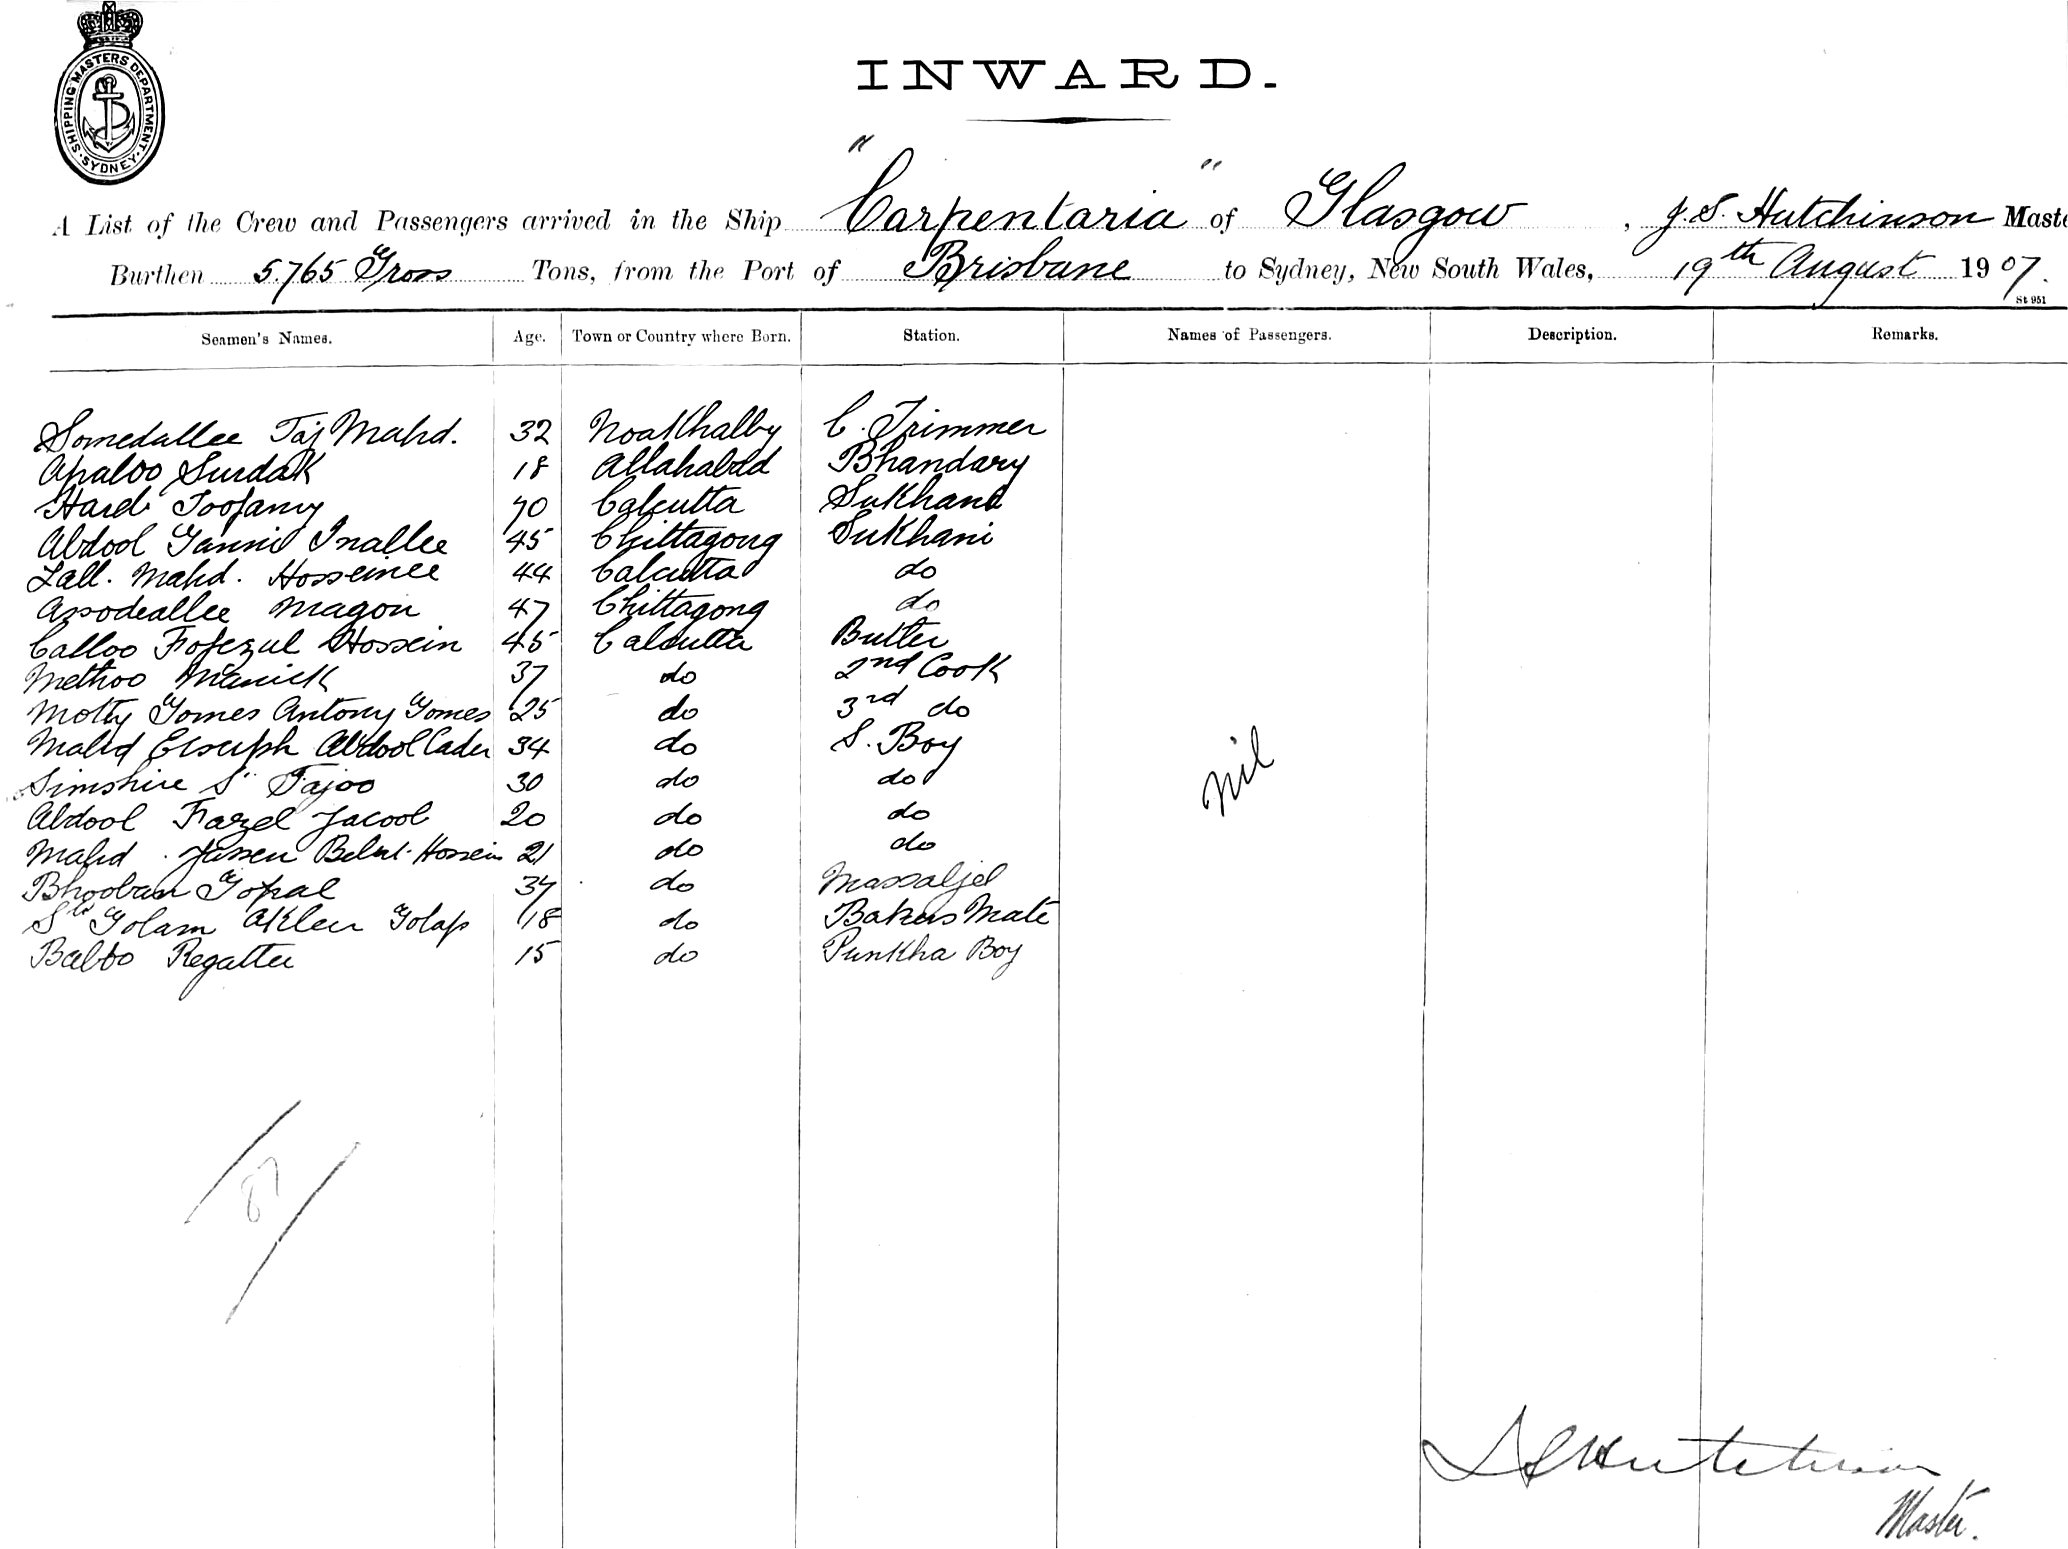 SHIPPING MASTERS DEPARTMENT. SYDNEY
INWARD.
A List of the Crew and Passengers arrived in the Ship "Carpentaria" of Glasgow, J. S. Hutchinson Maste
Burthen 5.765 Gross Tons, from the Port of Brisbane to Sydney, New South Wales, 19th August 1907.
St 951
Seamen's Names. Age. Town or Country where Born. Station. Names of Passengers. Description. Remarks.
Somedallee Taj Mahd. 32 Noakhalby C. Trimmer
Apaloo Surdak 18 Allahabad Bhandary
Hardi Toofany 70 Calcutta Sukhani
Abdool Gannie Inallee 45 Chittagong Sukhani
Lall. Mahd. Hosseinee 44 Calcutta do
Assodeallee Magon 47 Chittagong do
Calloo Fofezul Hossein 45 Calcutta Butler
Methoo Manick 37 do 2nd Cook
Motty Gomes Antony Gomes 25 do 3rd do
Mahd Esuph Abdool Cader 34 do S. Boy
Simshire S. Tajoo 30 do do
Abdool Fazel Jacoob 20 do do
Mahd. Jassen Hossein 21 do do
Bhooban Gopal 37 do Massaljel
Golam Golap 18 do Bakers Mate
Baboo Regatter 15 do Punkha Boy
Nil
87
J S Hutchinson
Master.